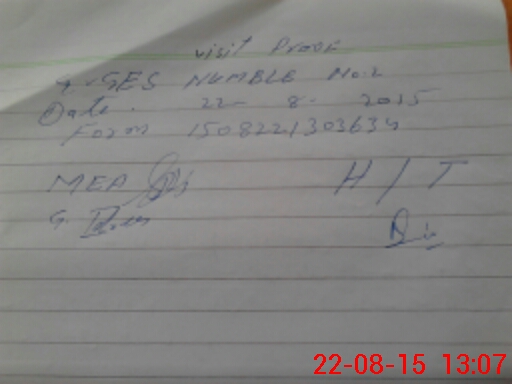 visit Proof
G.GES NUMBLE No:2
Date. 22- 8- 2015
Form 1508221303634
MEA H/T
G.
22-08-15 13:07